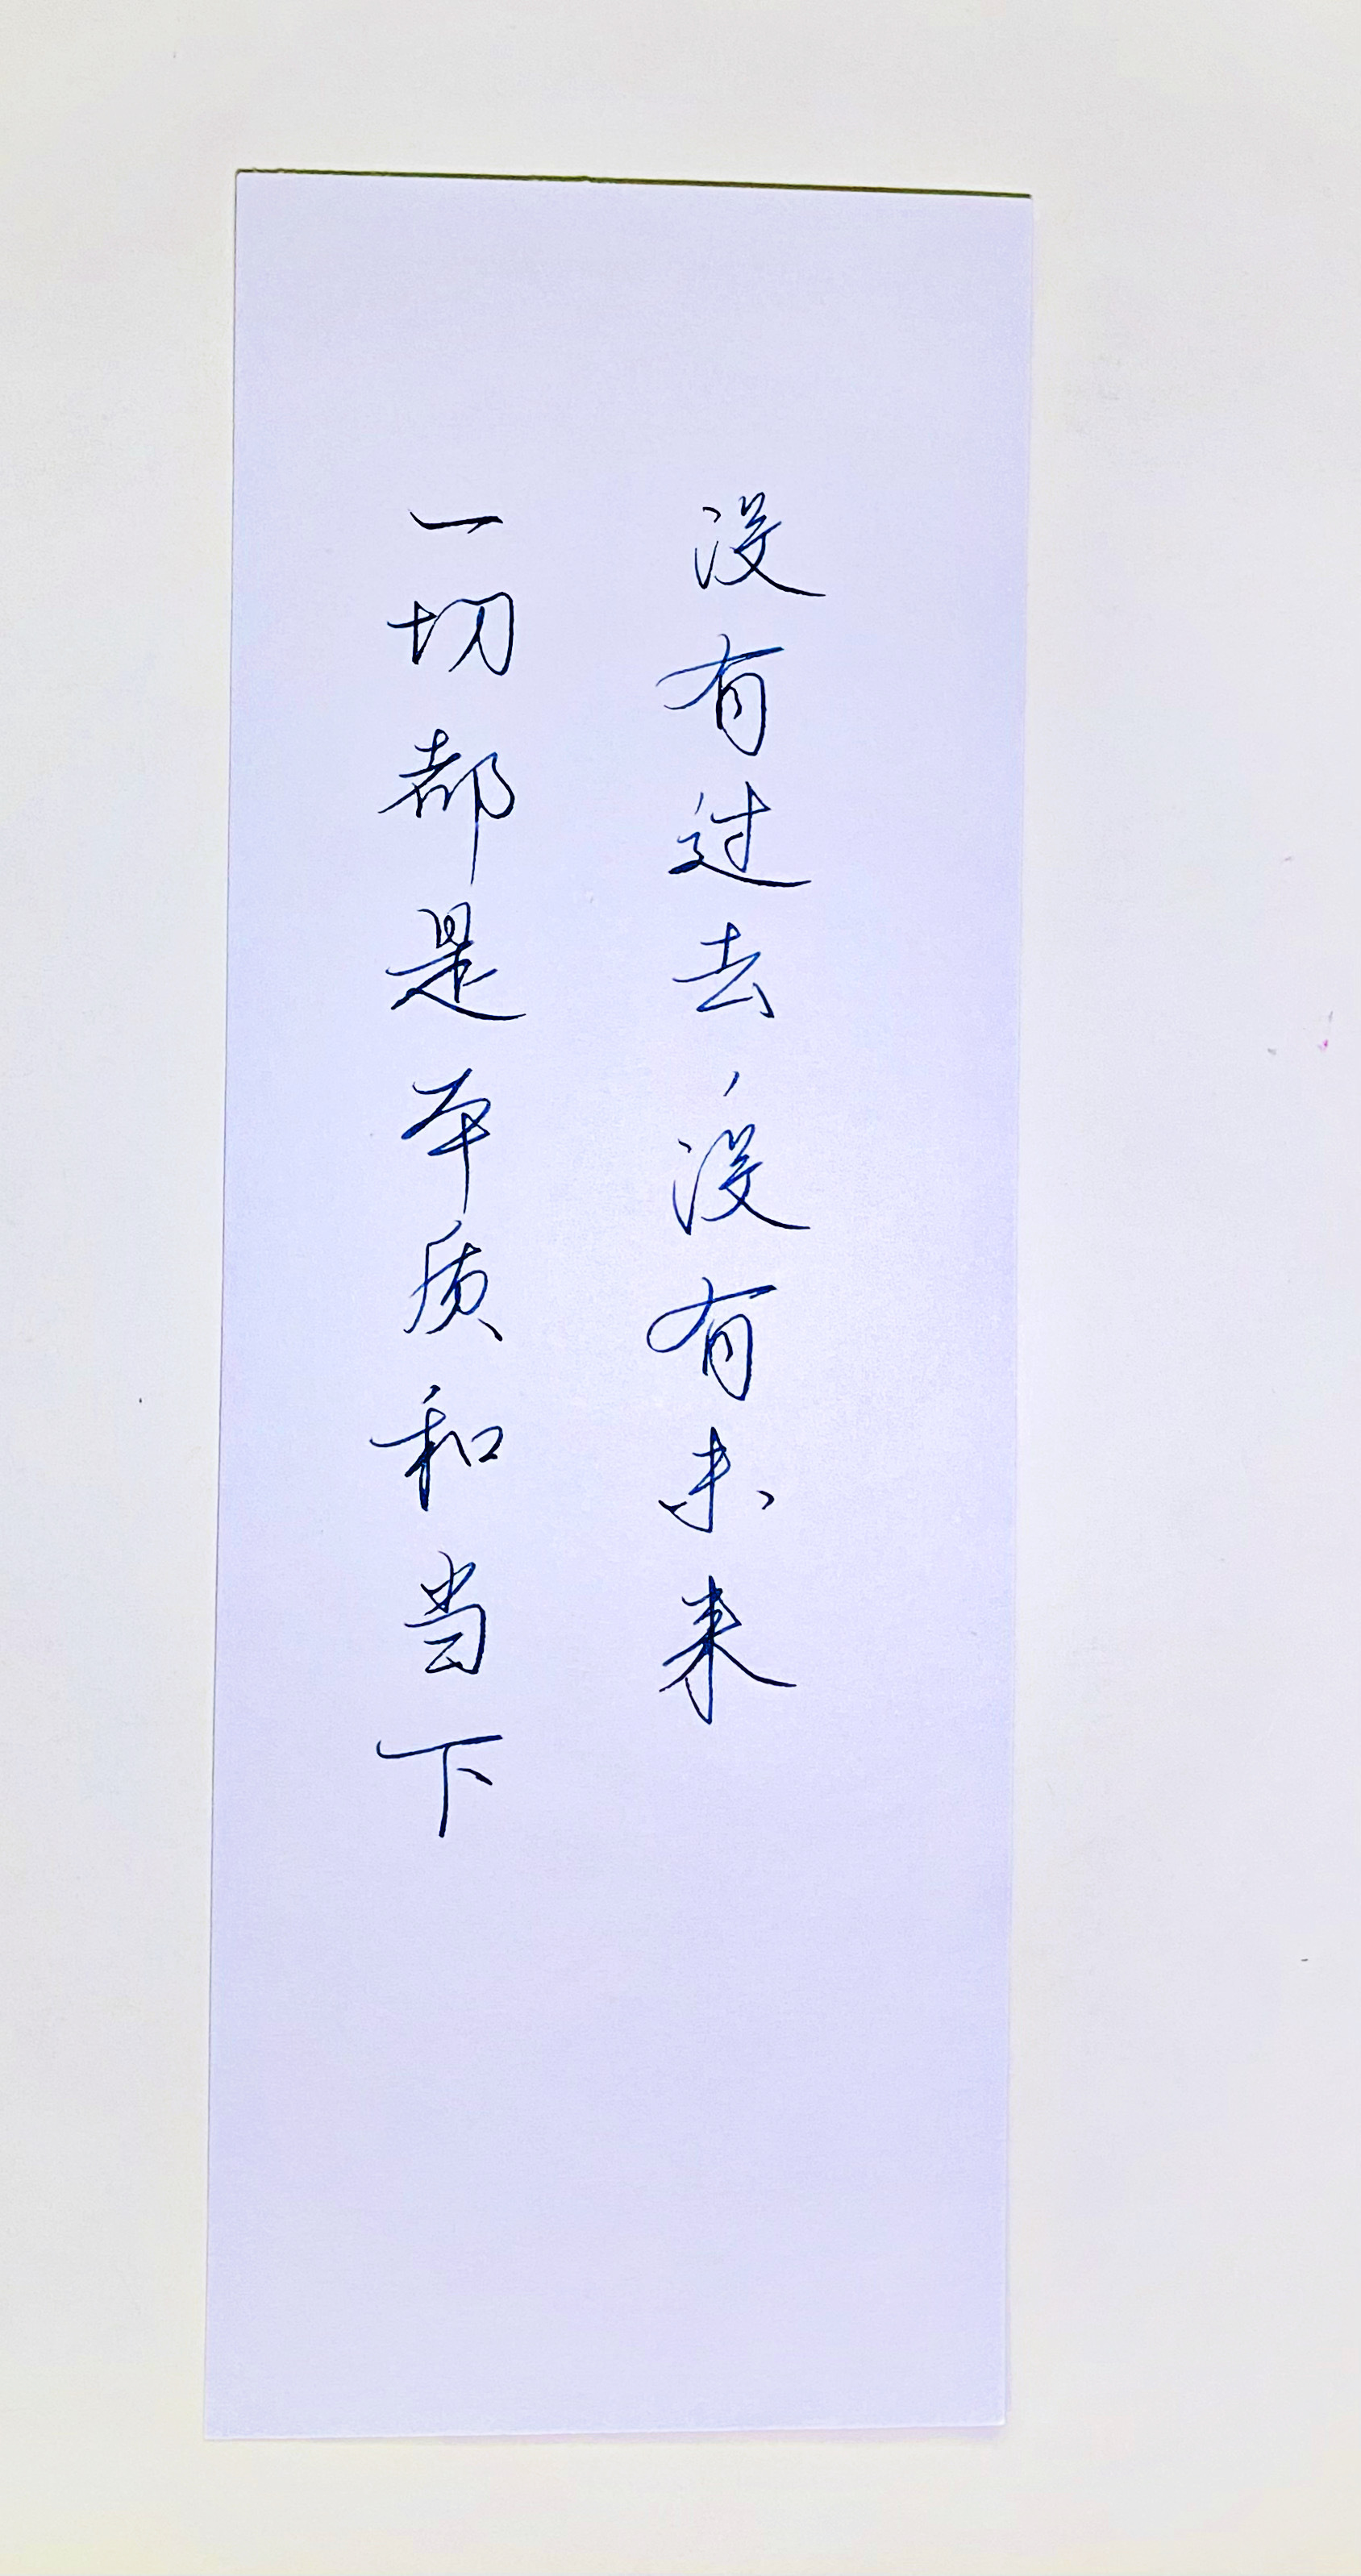 没有过去，没有未来
一切都是本质和当下